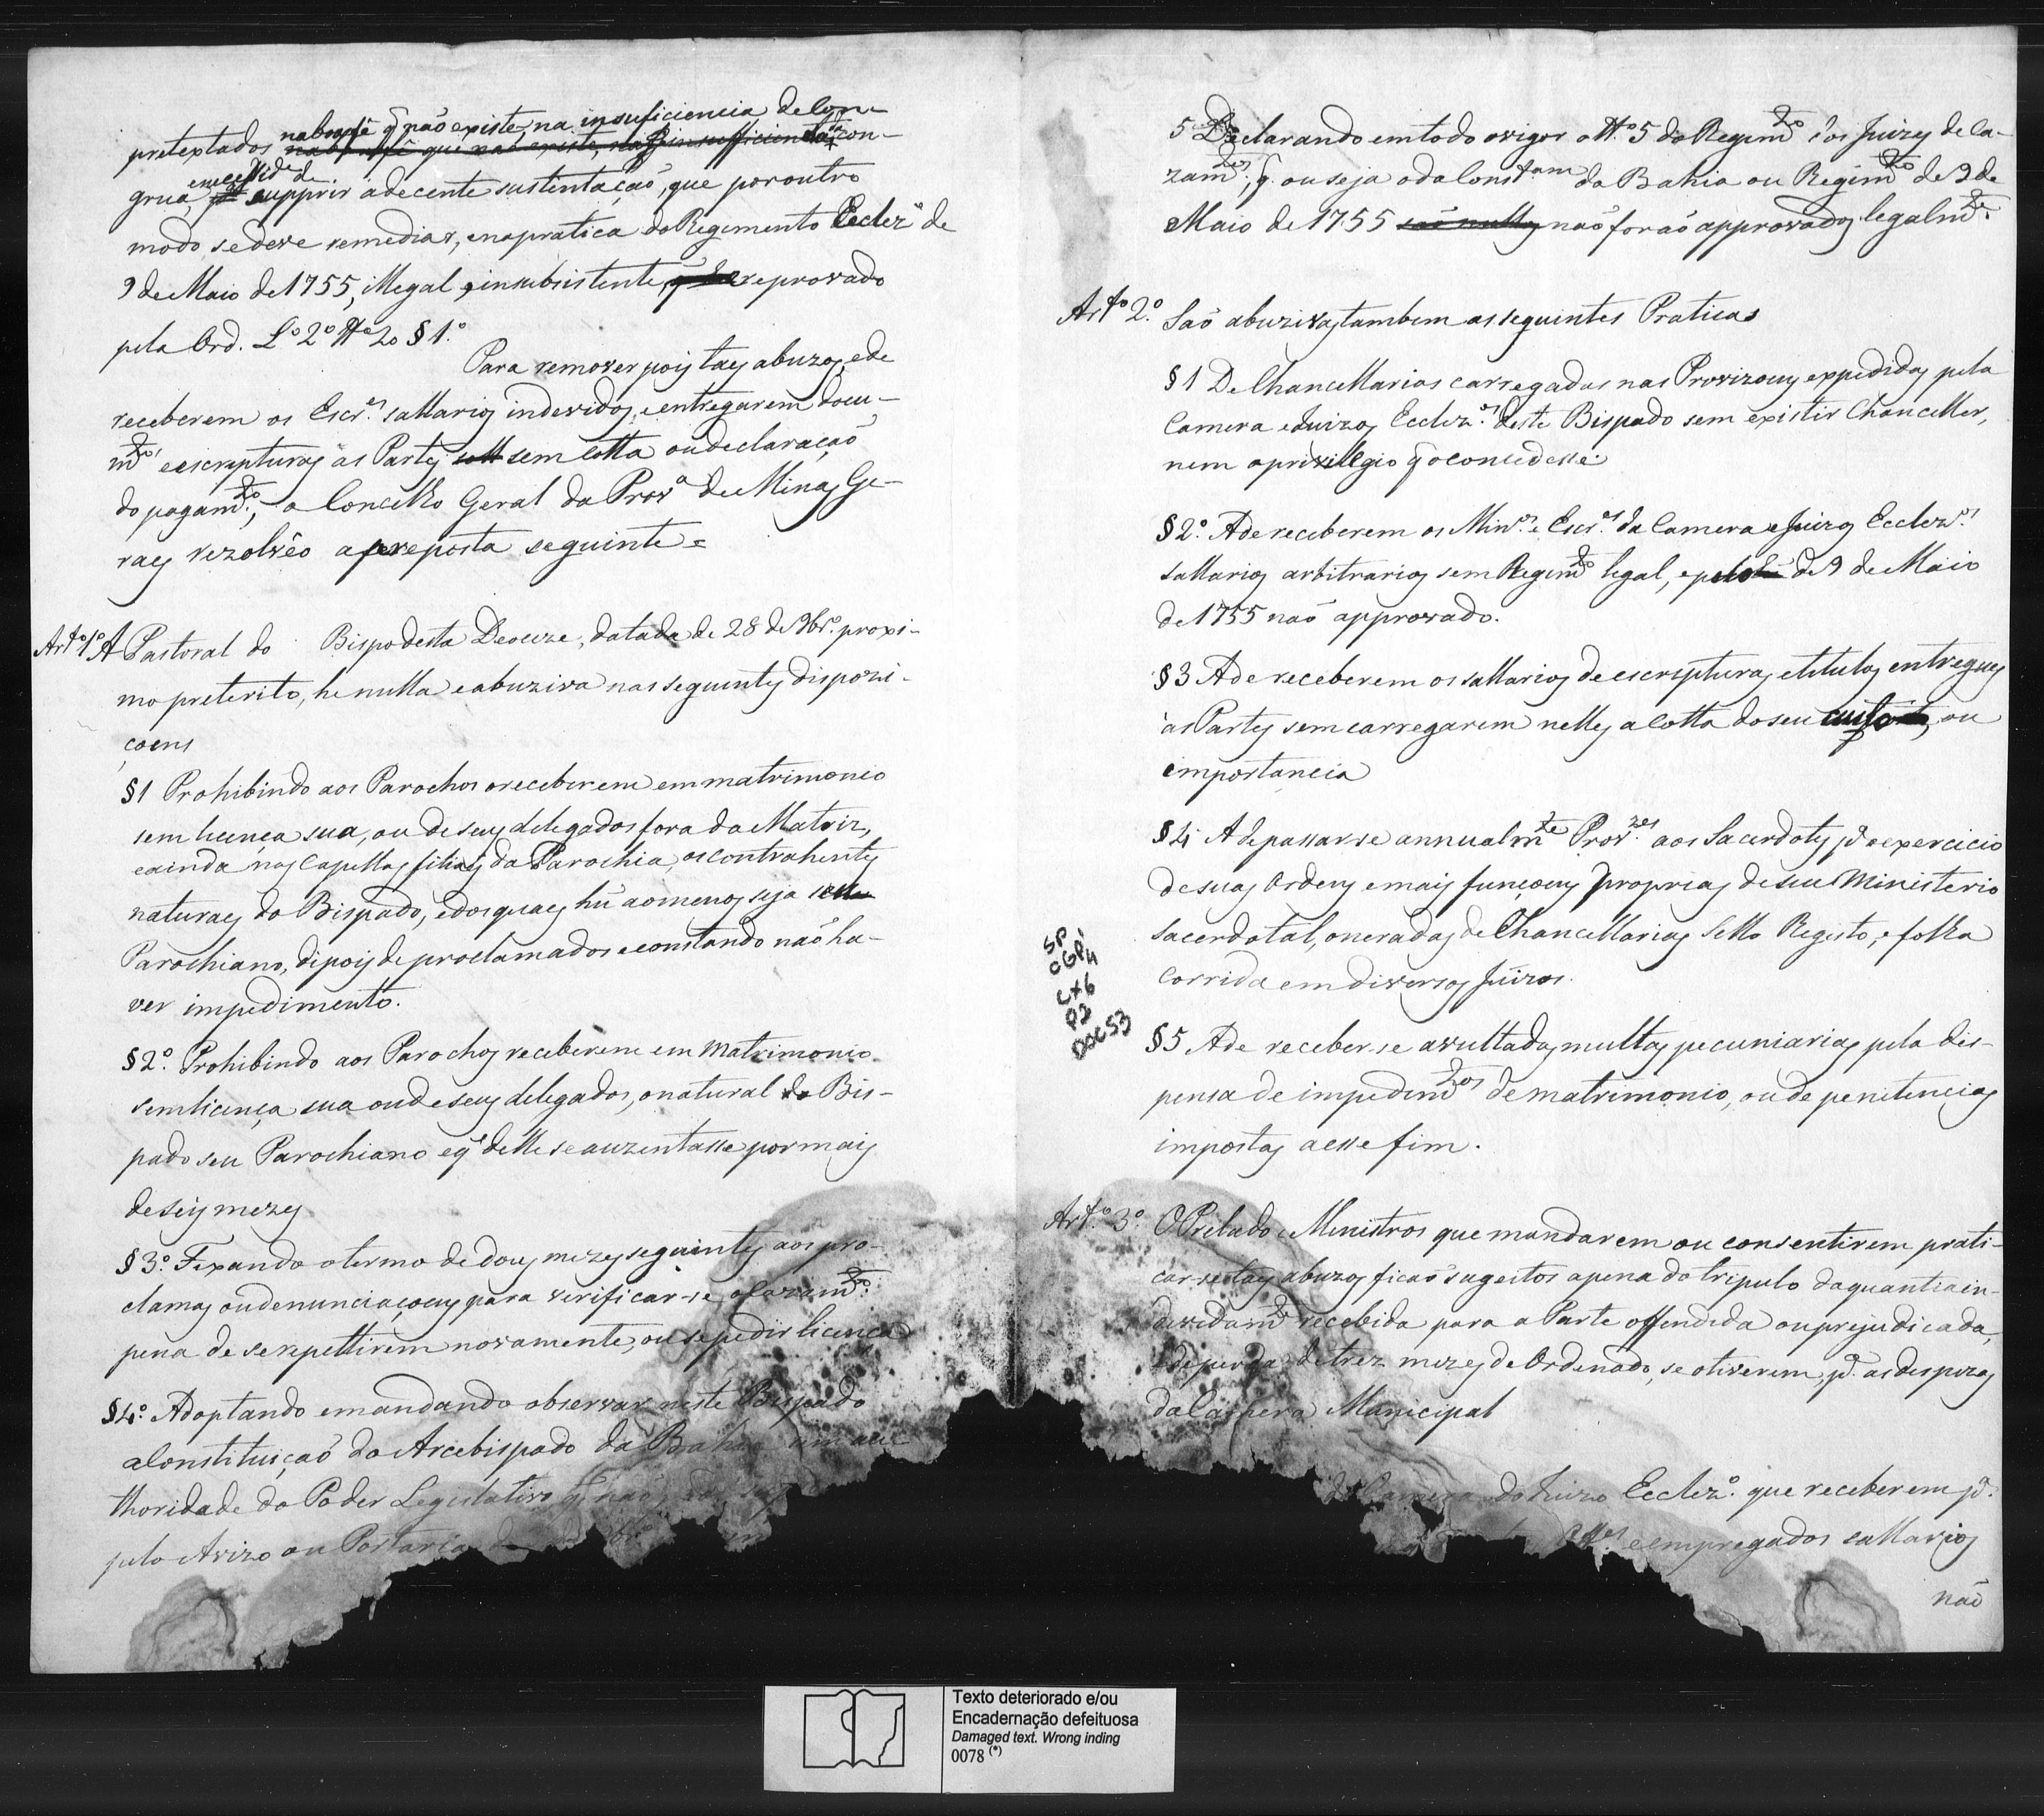 na boa fé q̃ não existe, na insuficiencia de Con-
pretextados na boa fé que não existe, na insufficiencia da con-
e necessid.e de
grua, supprir a decente sustentação, que por outro
modo se deve remediar, e na pratica do Regimento Ecclez.º de
9 de Maio de 1755, illegal, e insubsistente, reprovado
pela Ord. L.º 2º tt.º 20 § 1.º
Para remover pois taes abuzos, e de
receberem os Escr.es sallarios indevidos, e entregarem docu-
m.tos e escripturas ás Partes sem Cotta ou declaração
do pagam.to, o Concelho Geral da Prov.a de Minas Ge-
raes rezolvêo a proposta seguinte =
Art.º 1º A Pastoral do Bispo desta Deoceze, datada de 28 de 9br.º proxi-
mo preterito, he nulla e abuziva nas seguintes dispozi-
çoens
§1 Prohibindo aos Parochos o receberem em matrimonio
sem licença sua, ou de seus delegados fora da Matriz,
e ainda nas Capellas filiaes da Parochia, os contrahentes
naturaes do Bispado, e dos quaes hũ ao menos seja seu
Parochiano, dipois de proclamados e constando não ha-
ver impedimento.
§2º. Prohibindo aos Parochos receberem em Matrimonio
sem licença sua ou de seus delegados, o natural do Bis-
pado seu Parochiano e q̃ delle se auzentasse por mais
de seis mezes
§3º. Fixando o termo de dous mezes seguintes aos pro-
clamas ou denunciaçoens para verificar-se o Cazam.to
pena de se repettirem novamente, ou se pedir licença
§4º. Adoptando e mandando observar neste Bispado
a Constituição do Arcebispado da Bahia sem auc
thoridade do Poder Legislativo q̃ não
pelo Avizo ou Portaria de
5 Declarando em todo o vigor o tt.º 5 do Regim.to dos Juizes de Ca-
zam.tos, q̃. ou seja o da Constam da Bahia ou Regim.to de 9 de
Maio de 1755 são nullos não forão approvados legalm.te
Art.º 2º. São abuzivas tambem as seguintes Praticas
§1 De Chancellarias carregadas nas Provizoens expedidas pela
Camera e Juizos Ecclez.os deste Bispado sem existir Chanceller,
nem o privillegio q̃ o concedesse.
§2º. A de receberem os Min.os e Escr.es da Camera e Juizos Ecclez.os
sallarios arbitrarios sem Regim.to legal, e pelo de 9 de Maio
de 1755 não approvado.
§3 A de receberem os sallarios de escripturas e titulos entregues
ás Partes sem carregarem nelles a Cotta do seu custo, ou
importancia
§4 A de passar-se annualm.te Prov.zes aos Sacerdotes p.ª o exercicio
de suas Ordens e mais funçoens proprias de seu Ministerio
sacerdotal, oneradas de Chancellarias Sello Registo, e folha
corrida em diversos Juizos.
SP
CGP4
CX6
P2
DOC53
§5 A de receber-se avultadas multas pecuniarias pela dis-
pensa de impedim.tos de matrimonio, ou de penitencias
impostas a esse fim.
Art.º 3º. O Prelado e Ministros que mandarem ou consentirem prati-
car-se taes abuzos ficão sugeitos a pena do tripulo da quantia in-
devidam.te recebida para a Parte offendida ou prejudicada,
e de perda de trez mezes de Ordenado, se o tiverem, p.ª as despezas
da Camera Municipal
da Camera do Juizo Ecclez.º que receberem p.ª
e empregados sallarios
não
Texto deteriorado e/ou
Encadernação defeituosa
Damaged text. Wrong inding
0078 (*)